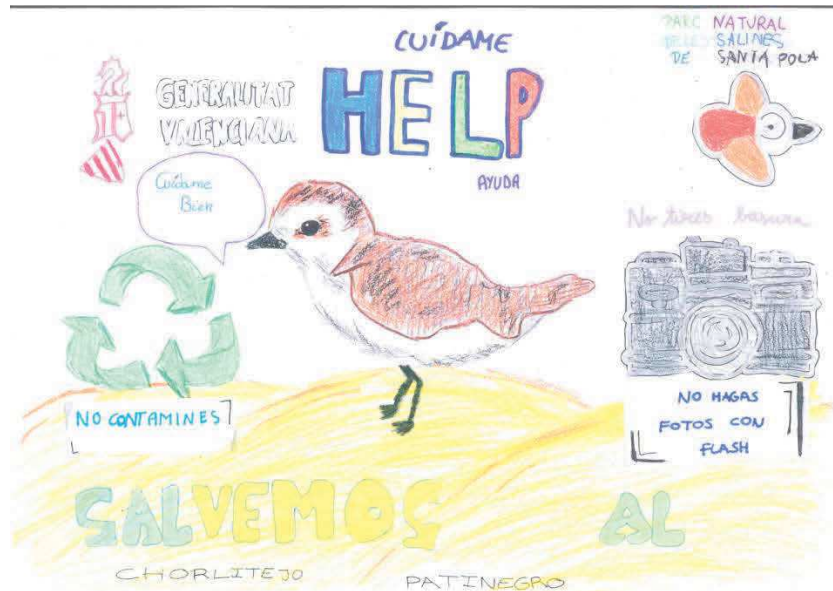 CUÍDAME
HELP
AYUDA
GENERALITAT
VALENCIANA
PARC NATURAL
DE LES SALINES
DE SANTA POLA
Cuídame
Bien
No tires basura
NO CONTAMINES
NO HAGAS
FOTOS CON
FLASH
SALVEMOS AL
CHORLITEJO PATINEGRO